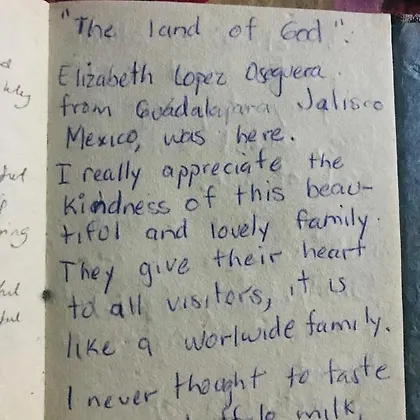 "The land of God":
Elizabeth Lopez Oseguera.
from Guadalajara Jalisco
Mexico, was here.
I really appreciate the
kindness of this beau-
tiful and lovely family.
They give their heart
to all visitors, it is
like a worlwide family.
I never thought to taste
milk,